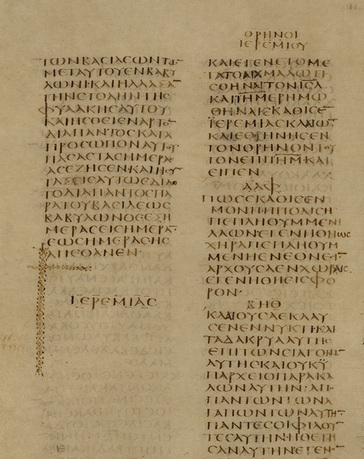 ΤΩΝΒΑϹΙΛΕΩΝΤΩ
ΜΕΤΑΥΤΟΥΕΝΒΑΒΥ
ΛΩΝΙΚΑΙΗΛΛΑΞΕ
ΤΗΝϹΤΟΛΗΝΤΗϹ
ΦΥΛΑΚΗϹΑΥΤΟΥ
ΚΑΙΗϹΘΙΕΝΑΡΤΟ
ΔΙΑΠΑΝΤΟϹΚΑΤΑ
ΠΡΟϹΩΠΟΝΑΥΤΟΥ
ΠΑϹΑϹΤΑϹΗΜΕΡΑϹ
ΑϹΕΖΗϹΕΝΚΑΙΗϹΥ
ΤΑΞΙϹΑΥΤΩΕΔΙΔΟ
ΤΟΔΙΑΠΑΝΤΟϹΠΑ
ΡΑΤΟΥΒΑϹΙΛΕΩϹ
ΒΑΒΥΛΩΝΟϹΕΞΗ
ΜΕΡΑϹΕΙϹΗΜΕΡΑ
ΕΩϹΗΜΕΡΑϹΗϹ
ΑΠΕΘΑΝΕΝ
ΙΕΡΕΜΙΑϹ
ΘΡΗΝΟΙ
ΙΕΡΕΜΙΟΥ
ΚΑΙΕΓΕΝΕΤΟΜΕ
ΤΑΤΟΑΙΧΜΑΛΩΤΙ
ϹΘΗΝΑΙΤΟΝΙϹΛ
ΚΑΙΙΛΗΜΕΡΗΜΩ
ΘΗΝΑΙΕΚΑΘΙϹΕ
ΙΕΡΕΜΙΑϹΚΛΑΙΩ
ΚΑΙΕΘΡΗΝΗϹΕΝ
ΤΟΝΘΡΗΝΟΝΤΟΥ
ΤΟΝΕΠΙΙΛΗΜΚΑΙ
ΕΙΠΕΝ
ΑΛΦ
ΠΩϹΕΚΑΘΙϹΕΝ
ΜΟΝΗΗΠΟΛΙϹΗ
ΠΕΠΛΗΘΥΜΜΕΝΗ
ΛΑΩΝΕΓΕΝΗΘΗΩϹ
ΧΗΡΑΠΕΠΛΗΘΥΜ
ΜΕΝΗΕΝΕΘΝΕϹΙ
ΑΡΧΟΥϹΑΕΝΧΩΡΑΙϹ
ΕΓΕΝΗΘΗΕΙϹΦΟ
ΡΟΝ
ΒΗΘ
ΚΛΑΙΟΥϹΑΕΚΛΑΥ
ϹΕΝΕΝΝΥΚΤΙΚΑΙ
ΤΑΔΑΚΡΥΑΑΥΤΗϹ
ΕΠΙΤΩΝϹΙΑΓΟΝΩ
ΑΥΤΗϹΚΑΙΟΥΧΥ
ΠΑΡΧΕΙΟΠΑΡΑΚΑ
ΛΩΝΑΥΤΗΝΑΠΟ
ΠΑΝΤΩΝΤΩΝΑ
ΓΑΠΩΝΤΩΝΑΥΤΗ
ΠΑΝΤΕϹΟΙΦΙΛΟΥ
ΤΕϹΑΥΤΗΝΗΘΕΤΗ
ϹΑΝΑΥΤΗΝΕΓΕΝ